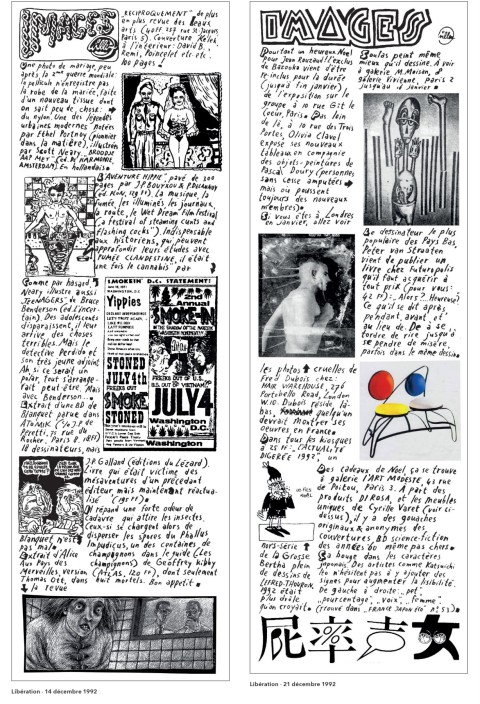 IMAGES
"RÉCIPROQUEMENT" de plus
en plus revue des beaux
arts (40FF 238 rue St Jacques
Paris 5). Couverture Kelek,
à l'intérieur: David B.,
Remi, Poincelet etc. etc.
100 pages!
Une photo de mariage, peu
après la 2ème guerre mondiale:
la pellicule n'enregistre pas
la robe de la mariée, faite
d'un nouveau tissu dont
on sait peu de chose:
du nylon. Une des légendes
urbaines modernes notée
par Ethel Portnoy (pionnier
dans la matière), illustrée
par Scott Neary, "BROODJE
AAP MET" (éd. DE HARMONIE,
AMSTERDAM). En hollandais.
"AVENTURE HIPPIE" pavé de 200
pages par JP BOUYXOU & P. DELANNOY
La musique, la
fumée, les illuminés, les journaux,
la route, le Wet Dream Film Festival
(a festival of steaming cunts and
flashing cocks"). Indispensable
aux historiens, qui peuvent
approfondir leurs études avec
"FUMÉE CLANDESTINE, il était
une fois le cannabis" par
Comme par hasard
Neary illustre aussi
"TEENAGERS" de Bruce
Benderson (éd L'incer-
tain). Des adolescents
disparaissent, il leur
arrive des choses
terribles. Mais le
détective Perdido et
son très jeune adjoint
Ah si ce serait un
polar, tout s'arrange-
rait peut-être. Mais
avec Benderson..
Extrait d'une BD de
Blanquet parue dans
ATOMIK
Pyretti, 75 rue du
Rocher, Paris 8. 18FF)
18 dessinateurs, mais
SMOKEIN'
D.C. STATEMENT!
Yippies
2nd
Annual
SMOKE-IN
STONED
JULY 4th
SMOKE
STONED
FREEKS OUT OF U.S.
U.S. OUT OF VIETNAM!
JULY 4
Washington
D.C.
Washington
Blanquet n'est
pas mal.
Extrait d'Alice
Aux Pays des
Merveilles, version
Thomas Ott, dans
la revue
J.P. Galland (éditions du Lézard).
Livre qui était victime des
mésaventures d'un précédent
éditeur mais maintenant réactua-
lisé
Il répand une forte odeur de
cadavre qui attire les insectes.
Ceux-ci se chargent alors de
disperser les spores du Phallus
Impudicus, un des centaines de
champignons dans le guide (Les
champignons) de Geoffrey Kibby
(ATLAS, 120 FF), dont seulement
huit mortels. Bon appetit.
Libération - 14 décembre 1992
IMAGES
Pourtant un heureux Noël
pour Jean Rouzaud: l'exclus
de Bazooka vient d'être
re-inclus pour la durée
(jusqu'à fin janvier)
de l'exposition sur le
groupe à 10 rue Git le
Coeur, Paris. Pas loin
de là, à 10 rue des Trois
Portes, Olivia Clavel
expose ses nouveaux
tableaux en compagnie
des objets-peintures de
Pascal Doury (personnes
sans cesse amputées
mais où poussent
toujours des nouveaux
membres).
Si vous êtes à Londres
en janvier, allez voir
Soulas peint même
mieux qu'il dessine. A voir
à galerie M. Moisan, 8
Galerie Vivienne, Paris 2
jusqu'au 16 janvier.
Le dessinateur le plus
populaire des Pays Bas,
Peter van Straaten
vient de publier un
livre chez Futuropolis
qu'il faut acquérir à
tout prix (pour vous:
42 FF): "Alors?.. Heureuse?"
Ce qu'il se dit après,
pendant, avant et
au lieu de. De à se
tordre de rire jusqu'à
se pendre de misère,
parfois dans le même dessin.
les photos cruelles de
Fred Dubois chez:
HAIR WAREHOUSE, 276
Portobello Road, London
W.10. Dubois réside là-
bas, quelqu'un
devrait montrer ses
oeuvres en France.
Dans tous les kiosques
à 25 FF: "L'ACTUALITÉ
DIGÉRÉE 1992", un
hors-série
de la Grosse
Bertha plein
de dessins de
LEFRED-THOURON.
1992 était
plus drôle
qu'on croyait.
Des cadeaux de Noël ça se trouve
à galerie L'ART MODESTE, 42 rue
de Poitou, Paris 3. A part des
produits DI ROSA, et les meubles
uniques de Cyrille Varet (voir ci-
dessus), il y a des gouaches
originaux & anonymes des
couvertures BD science-fiction
des années 60 même pas chers.
Ça bouge dans les caractères
japonais. Des artistes comme Katsuichi
Ito n'hésitent pas à y ajouter des
signes pour augmenter la lisibilité.
De gauche à droite: "pet",
"pourcentage", "voix", "femme"
(trouvé dans "FRANCE JAPON ÉCO" n° 53).
屁 率 声 女
Libération - 21 décembre 1992